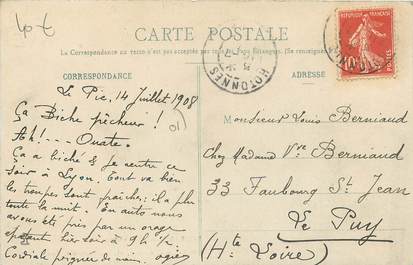 CARTE POSTALE
La Correspondance au recto n'est pas acceptée par tous les Pays Étrangers. (Se renseigner
CORRESPONDANCE
ADRESSE
HOTONNES
RÉPUBLIQUE FRANÇAISE
POSTES
10
Le Pic, 14 Juillet 1908
Ça Biche pêcheur !
Ah!... Ouate.
Ça a biché & je rentre ce
soir à Lyon. Tout va bien
les troupes sont fraîches; il a plu
toute la nuit. En auto nous
avons été pris par un orage
épatant hier soir à 9 h ½.
Cordiale poignée de main.
Monsieur Louis Berniaud
chez Madame Vve Berniaud
33 Faubourg St Jean
Le Puy
(Hte Loire)